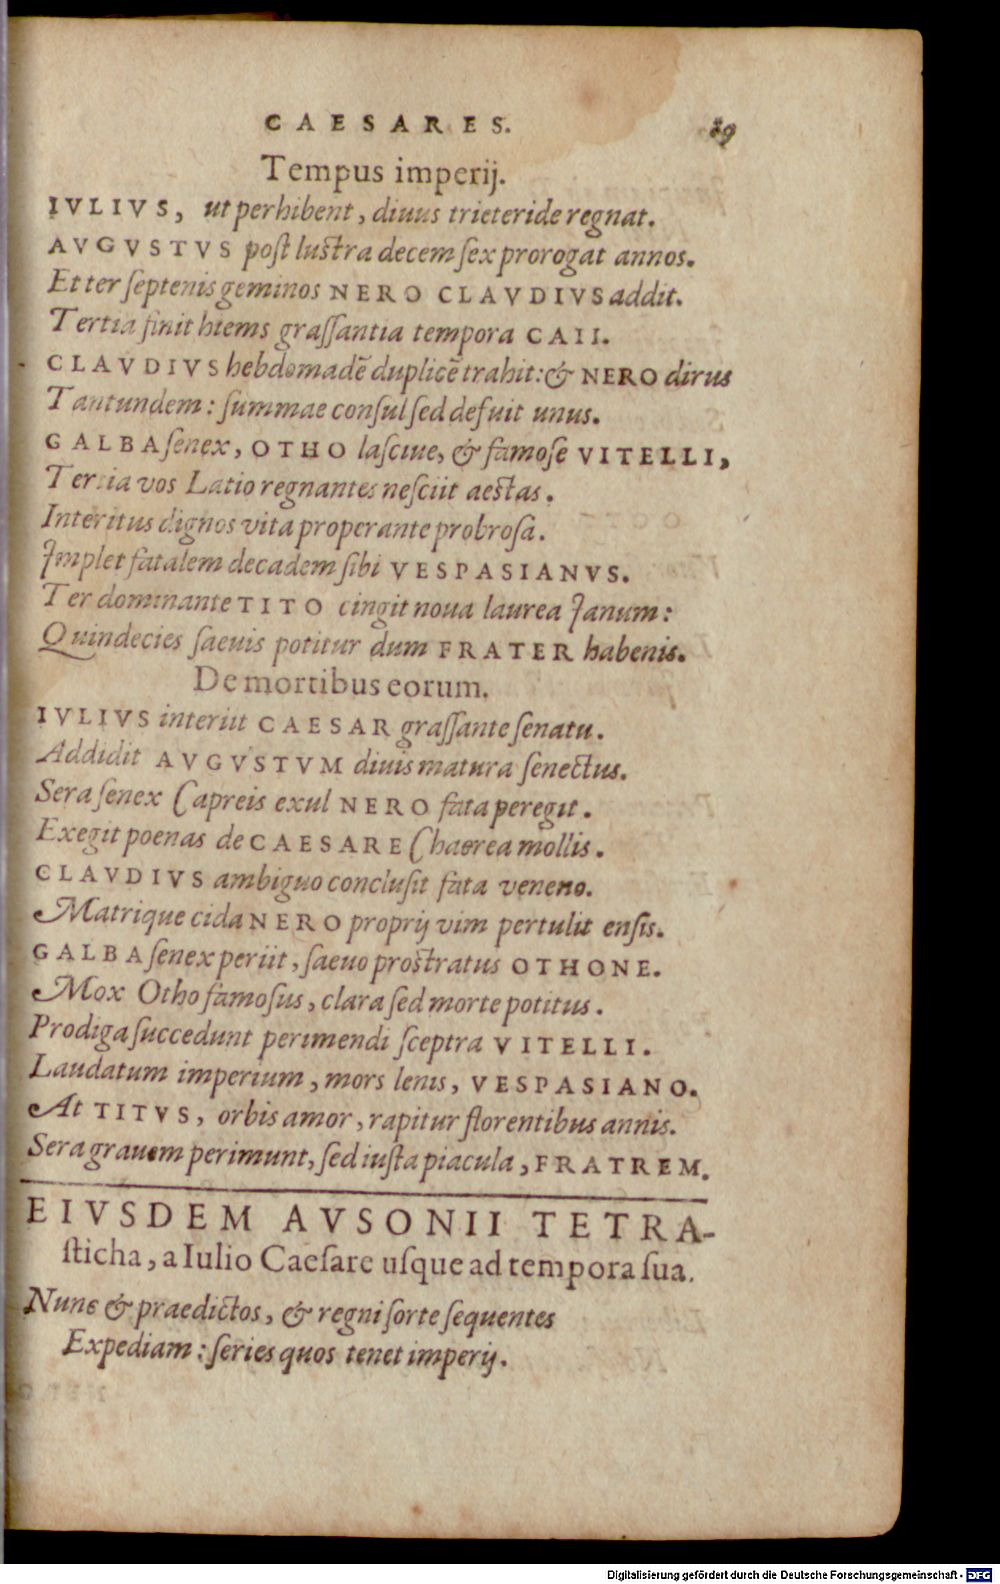 CAESARES. 89
Tempus imperij.
IVLIVS, ut perhibent, diuus trieteride regnat.
AVGVSTVS poſt luſtra decem ſex prorogat annos.
Et ter ſeptenis geminos NERO CLAVDIVS addit.
Tertia finit hiems graſſantia tempora CAII.
CLAVDIVS hebdomadē duplicē trahit: & NERO dirus
Tantundem: ſummae conſul ſed defuit unus.
GALBA ſenex, OTHO laſciue, & famoſe VITELLI,
Tertia vos Latio regnantes neſciit aeſtas.
Interitus dignos vita properante probroſa.
Implet fatalem decadem ſibi VESPASIANVS.
Ter dominante TITO cingit noua laurea Ianum:
Quindecies ſaeuis potitur dum FRATER habenis.
De mortibus eorum.
IVLIVS interiit CAESAR graſſante ſenatu.
Addidit AVGVSTVM diuis matura ſenectus.
Sera ſenex Capreis exul NERO fata peregit.
Exegit poenas de CAESARE Chaerea mollis.
CLAVDIVS ambiguo concluſit fata veneno.
Matrique cida NERO proprij vim pertulit enſis.
GALBA ſenex periit, ſaeuo proſtratus OTHONE.
Mox Otho famoſus, clara ſed morte potitus.
Prodiga ſuccedunt perimendi ſceptra VITELLI.
Laudatum imperium, mors lenis, VESPASIANO.
At TITVS, orbis amor, rapitur florentibus annis.
Sera grauem perimunt, ſed iuſta piacula, FRATREM.
EIVSDEM AVSONII TETRA-
ſticha, a Iulio Caeſare uſque ad tempora ſua.
Nunc & praedictos, & regni ſorte ſequentes
Expediam: ſeries quos tenet imperij.
Digitalisierung gefördert durch die Deutsche Forschungsgemeinschaft - DFG